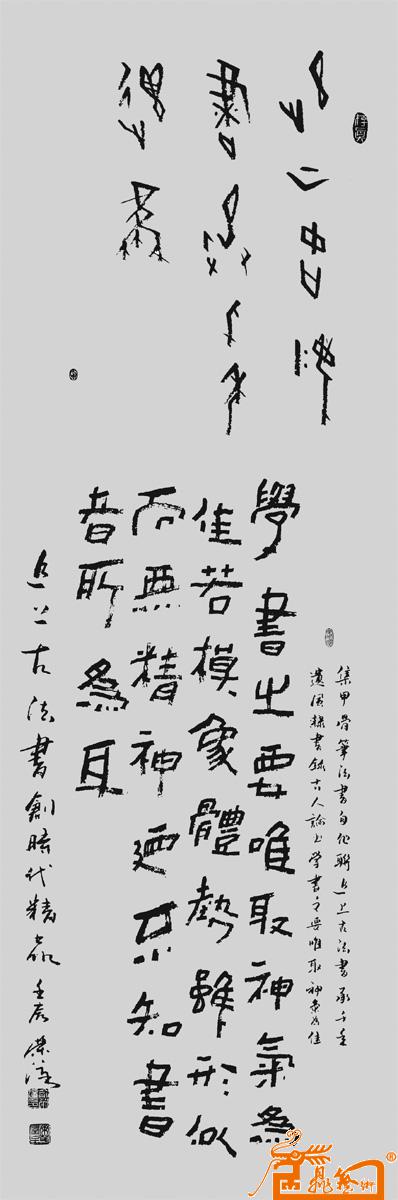 追上古法
書承千年
遺風
集甲骨筆法書自作聯追上古法書承千年
遺風隸書錄古人論書學書之要唯取神氣為佳
學書之要唯取神氣為
佳若模象體勢雖形似
而無精神迺不知書
者所為耳
追上古法書創時代精品 壬辰